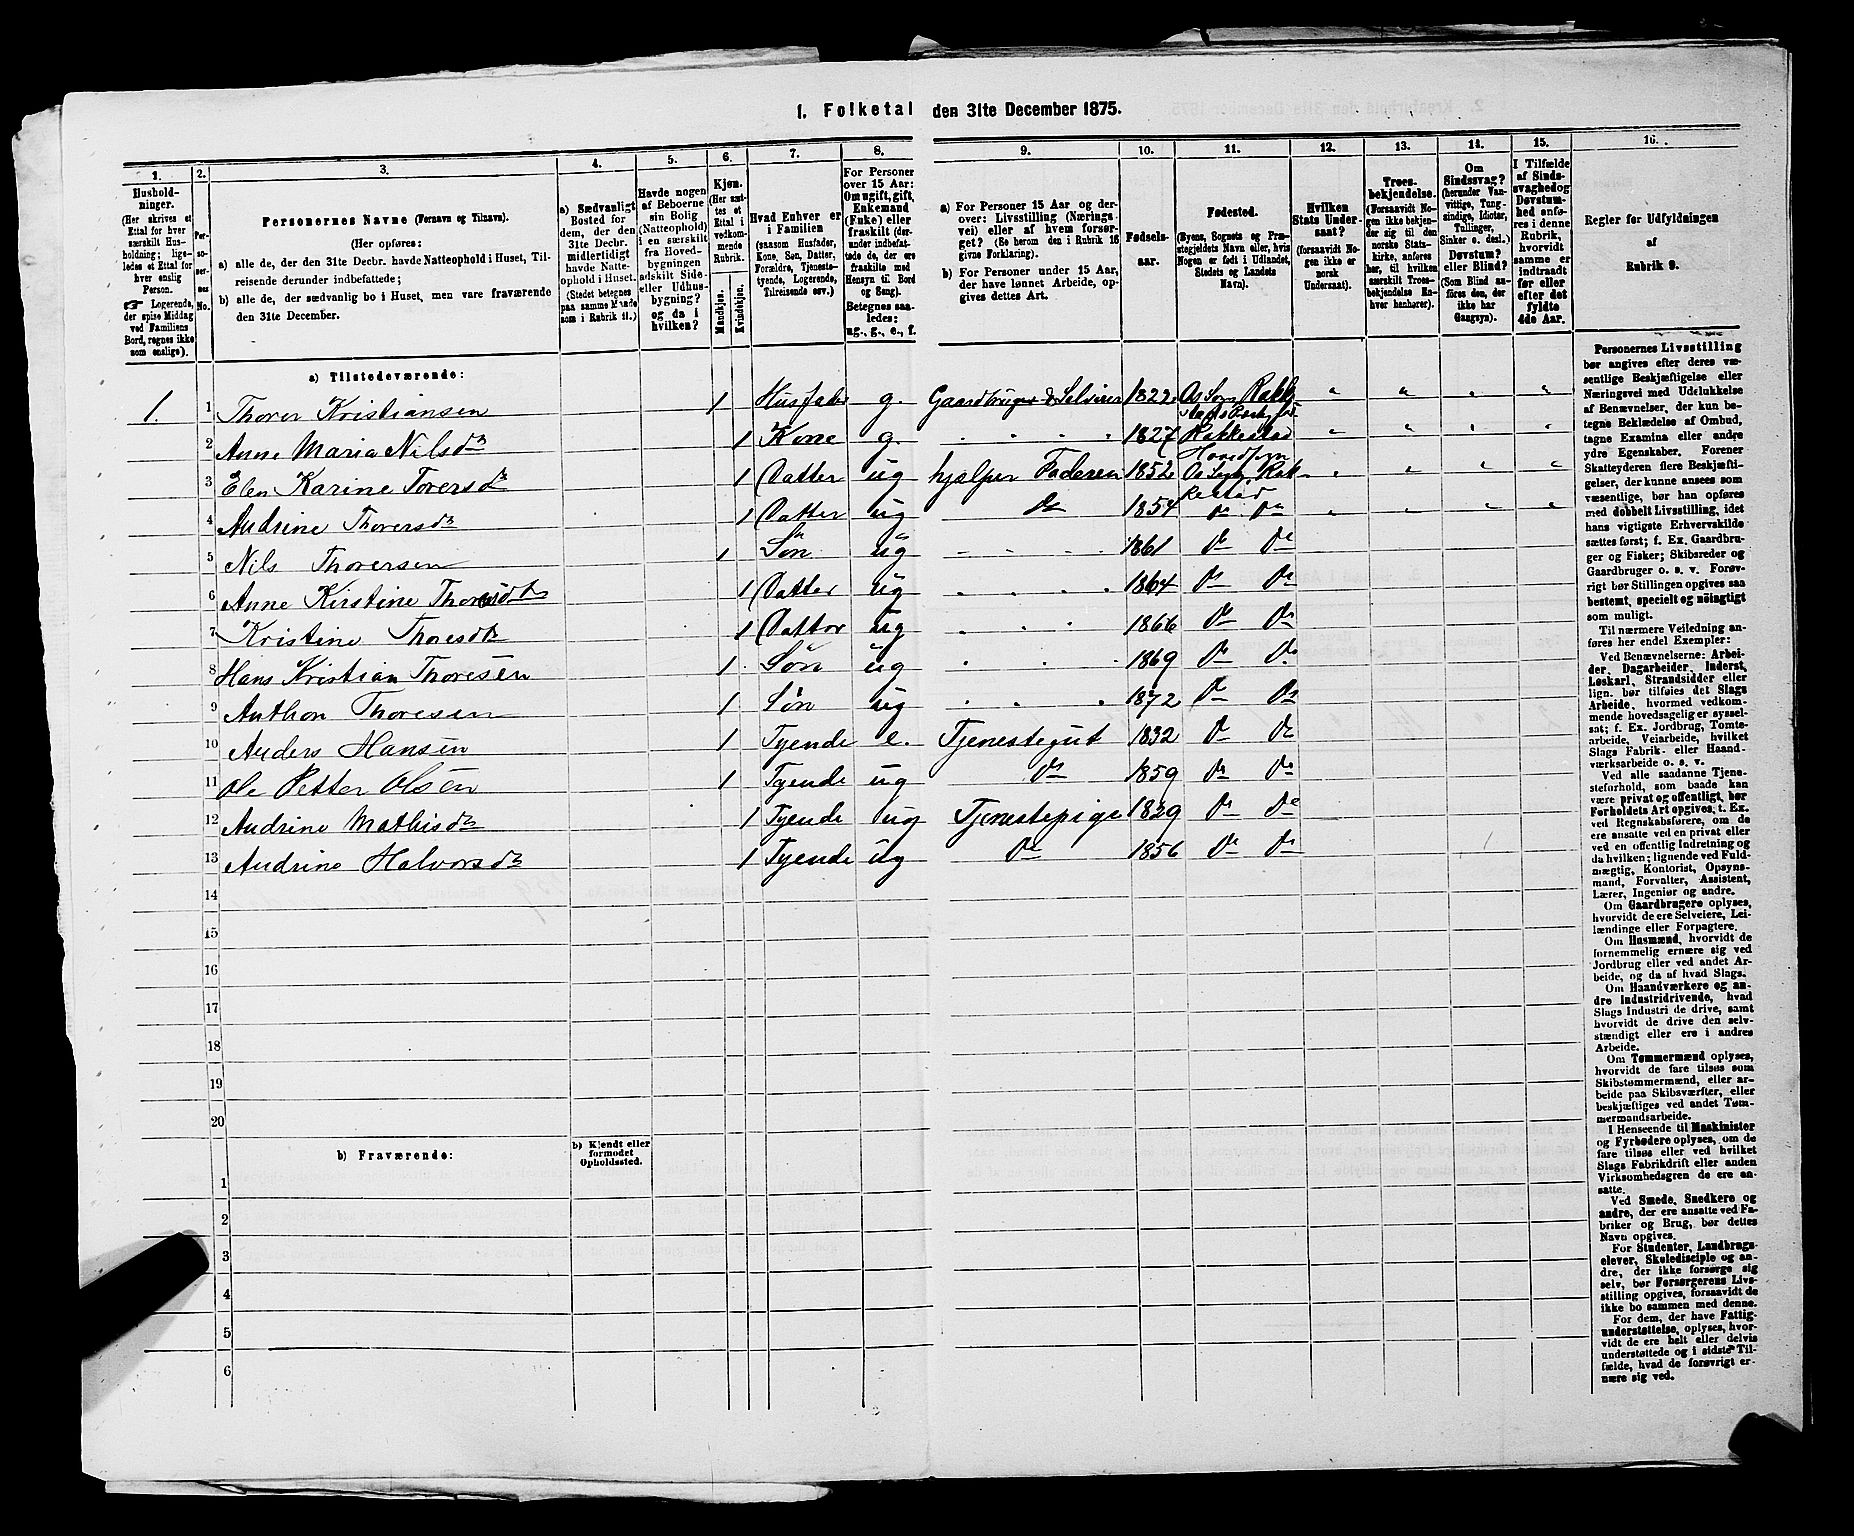 1. Folketal den 31te December 1875.
1.
Hushold-
ninger.
(Her skrives et
Ettal for hver
særskilt Hus-
holdning; lige-
ledes et Ettal for
hver enslig
Person.
☞ Logerende,
der spise Middag
ved Familiens
Bord, regnes ikke
som enslige).
2.
Per-
so-
ner-
nes
No.
3.
Personernes Navne (Fornavn og Tilnavn).
(Her opføres:
a) alle de, der den 31te Decbr. havde Natteophold i Huset, Til-
reisende derunder indbefattede;
b) alle de, der sædvanlig bo i Huset, men vare fraværende
den 31te December.
4.
a) Sædvanligt
Bosted for
dem, der den
31te Decbr.
midlertidigt
havde Natte-
ophold i Huset.
(Stedet betegnes
paa samme Maade
som i Rubrik 11.)
5.
Havde nogen
af Beboerne
sin Bolig
(Natteophold)
i en særskilt
fra Hoved-
bygningen
adskilt Side-
eller Udhus-
bygning?
og da i
hvilken?
6.
Kjøn.
(Her sæt-
tes et
Ettal i
vedkom-
mende
Rubrik.
Mandkjøn.
Kvindekjøn.
7.
Hvad Enhver er
i Familien
(saasom Husfader,
Kone, Søn, Datter,
Forældre, Tjeneste-
tyende, Logerende,
Tilreisende osv.)
8.
For Personer
over 15 Aar:
Om ugift, gift,
Enkemand
(Enke) eller
fraskilt (der-
under indbefat-
tede de, der ere
fraskilte med
Hensyn til Bord
og Seng).
Betegnes saa-
ledes:
ug., g., e., f.
9.
a) For Personer 15 Aar og der-
over: Livsstilling (Nærings-
vei) eller af hvem forsør-
get? (Se herom den i Rubrik 16
givne Forklaring).
b) For Personer under 15 Aar,
der have lønnet Arbeide, op-
gives dettes Art.
10.
Fødsels-
aar.
11.
Fødested.
(Byens, Sognets og Præ-
stegjeldets Navn eller, hvis
Nogen er født i Udlandet,
Stedets og Landets
Navn).
12.
Hvilken
Stats Under-
saat?
(forsaavidt No-
gen ikke er
norsk
Undersaat).
13.
Troes-
bekjendelse.
(Forsaavidt No-
gen ikke bekjen-
der sig til den
norske Stats-
kirke, anføres
her, til hvilken
særskilt Troes-
bekjendelse En-
hver henhører).
14.
Om
Sindssvag?
(herunder Van-
vittige, Tung-
sindige, Idioter,
Tullinger,
Sinker o. desl.)
Døvstum?
eller Blind?
(Som Blind an-
føres den, der
ikke har
Gangsyn).
15.
I Tilfælde
af Sinds-
svaghed og
Døvstum-
hed anfø-
res i denne
Rubrik,
hvorvidt
samme er
indtraadt
før eller
efter det
fyldte
4de Aar.
16.
Regler for Udfyldningen
af
Rubrik 9.
a) Tilstedeværende:
1. 1 Thorer Kristiansen 1 Husfader g. Gaardbruger & Selveier 1822 Os Sogn Rakk- " " " "
2 Anne Maria Nilsdtr 1 Kone g. 1827 Rakkestad " " " "
Hovedsogn
3 Elen Karine Torersdtr 1 Datter ug hjælper Faderen 1852 Os Sogn Rak- " " " "
kestad
4 Andrine Thorersdtr 1 Datter ug do 1854 do do " " " "
5 Nils Thorersen 1 Søn ug 1861 do do
6 Anne Kirstine Thoresdtr 1 Datter ug 1864 do do
7 Kristine Thoresdtr 1 Datter ug 1866 do do
8 Hans Kristian Thoresen 1 Søn ug 1869 do do
9 Anthon Thoresen 1 Søn ug 1872 do do
10 Anders Hansen 1 Tyende e. Tjenestegut 1832 do do
11 Ole Petter Olsen 1 Tyende ug do 1859 do do
12 Andrine Mathisdtr 1 Tyende ug Tjenestepige 1829 do do
13 Andrine Halvorsdtr 1 Tyende ug do 1856 do do
14
15
16
17
18
19
20
b) Fraværende:
b) Kjendt eller
formodet
Opholdssted.
1
2
3
4
5
6
Personernes Livsstilling
bør angives efter deres væ-
sentlige Beskjæftigelse eller
Næringsvei med Udelukkelse
af Benævnelser, der kun be-
tegne Beklædelse af Ombud,
tagne Examina eller andre
ydre Egenskaber. Forener
Skatteyderen flere Beskjæfti-
gelser, der kunne ansees som
væsentlige, bør han opføres
med dobbelt Livsstilling, idet
hans vigtigste Erhvervskilde
sættes først; f. Ex. Gaardbru-
ger og Fisker; Skibsreder og
Gaardbruger o. s. v. Forøv-
rigt bør Stillingen opgives saa
bestemt, specielt og nöiagtigt
som muligt.
Til nærmere Veiledning an-
føres her endel Exempler:
Ved Benævnelserne: Arbei-
der, Dagarbeider, Inderst,
Løskarl, Strandsidder eller
lign. bør tilføies det Slags
Arbeide, hvormed vedkom-
mende hovedsagelig er syssel-
sat; f. Ex. Jordbrug, Tomte-
arbeide, Veiarbeide, hvilket
Slags Fabrik- eller Haand-
værksarbeide o. s. v.
Ved alle saadanne Tjene-
steforhold, som baade kan
være privat og offentligt, bør
Forholdets Art opgives, t. Ex.
ved Regnskabsførere, om de
ere ansatte ved en privat eller
ved en offentlig Indretning og
da hvilken; lignende ved Fuld-
mægtig, Kontorist, Opsyns-
mand, Forvalter, Assistent,
Lærer, Ingeniør og andre.
Om Gaardbrugere oplyses,
hvorvidt de ere Selveiere, Lei-
lændinge eller Forpagtere.
Om Husmænd, hvorvidt de
fornemmelig ernære sig ved
Jordbrug eller ved andet Ar-
beide, og da af hvad Slags.
Om Haandværkere og an-
dre Industridrivende, hvad
Slags Industri de drive, samt
hvorvidt de drive den selv-
stændigt eller ere i andres
Arbeide.
Om Tømmermænd oplyses,
hvorvidt de fare tilsøs som
Skibstømmermænd, eller ar-
beide paa Skibsværfter, eller
beskjæftiges ved andet Tøm-
mermandsarbeide.
I Henseende til Maskinister
og Fyrbødere oplyses, om de
fare tilsøs eller ved hvilket
Slags Fabrikdrift eller anden
Virksomhedsgren de ere an-
satte.
Ved Smede, Snedkere og
andre, der ere ansatte ved Fa-
briker og Brug, bør dettes
Navn opgives.
For Studenter, Landbrugs-
elever, Skoledisciple og an-
dre, der ikke forsørge sig
selv, bør Forsørgerens Livs-
stilling opgives, forsaavidt de
ikke bo sammen med denne.
For dem, der have Fattig-
understøttelse, oplyses, hvor-
vidt de ere helt eller delvis
understøttede og i sidste Til-
fælde, hvad de forøvrigt er-
nære sig ved.